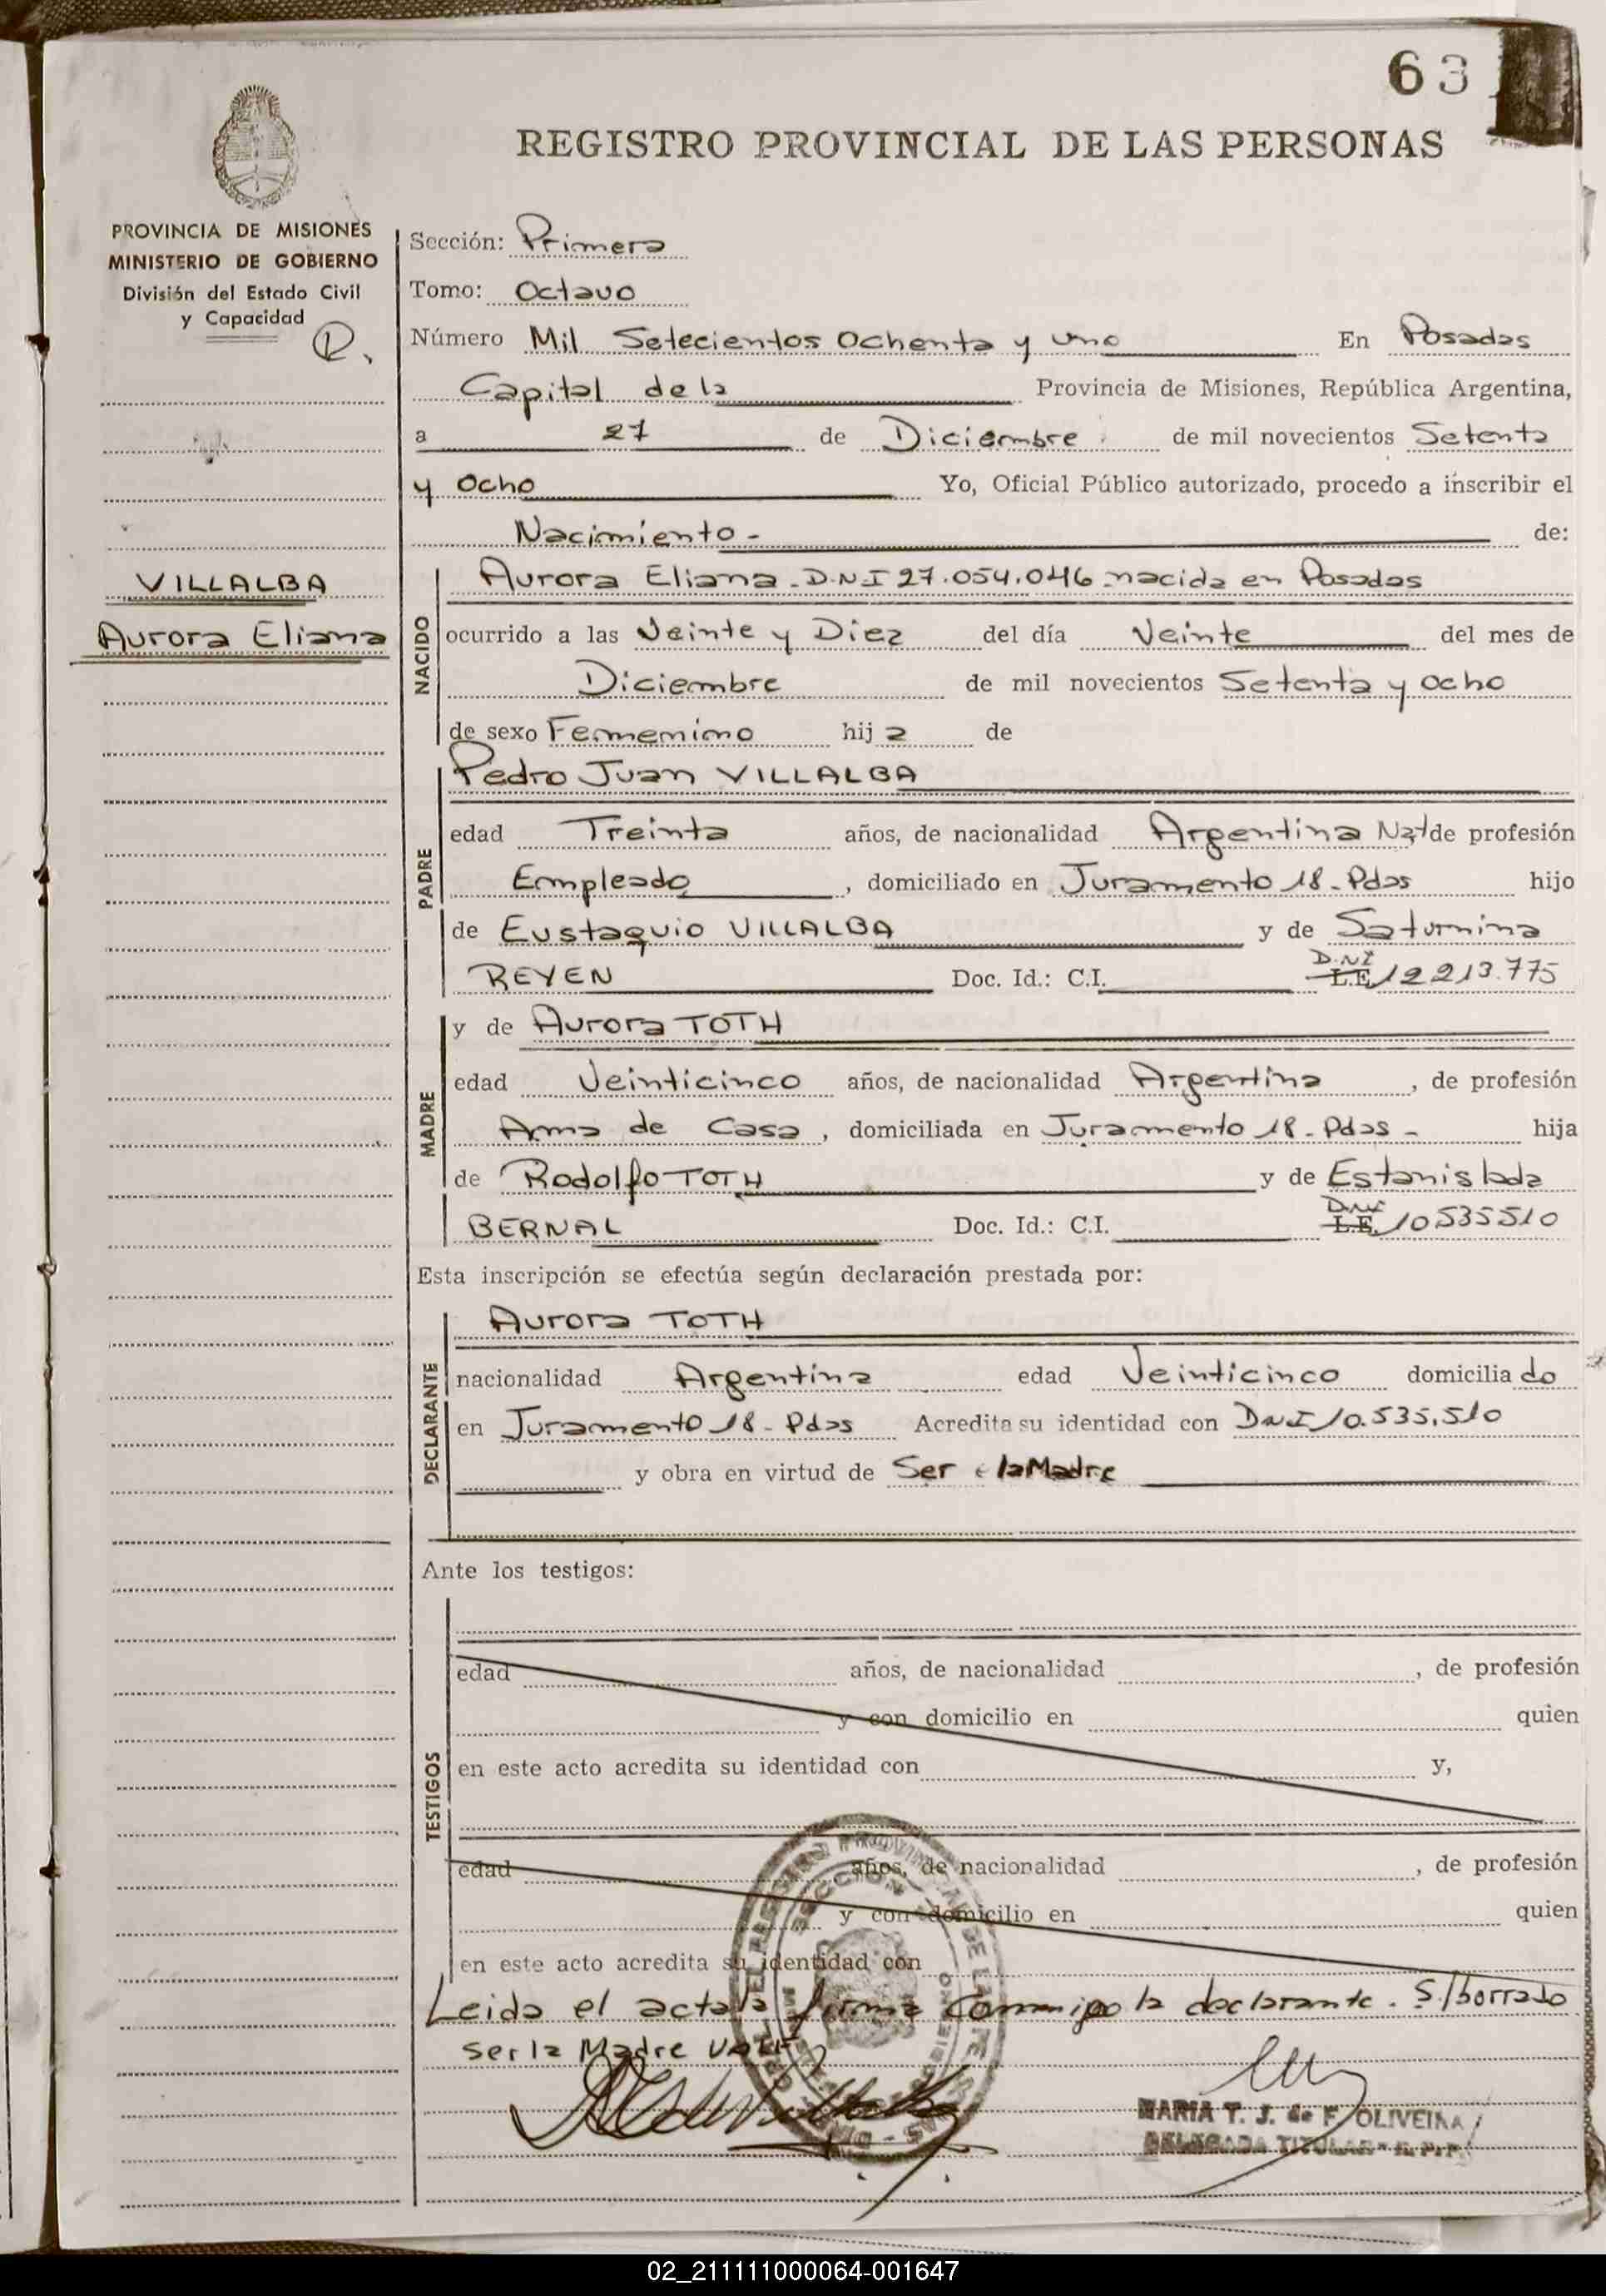 63
REGISTRO PROVINCIAL DE LAS PERSONAS
PROVINCIA DE MISIONES
MINISTERIO DE GOBIERNO
División del Estado Civil
y Capacidad
Sección: Primera
Tomo: Octavo
Número Mil Setecientos Ochenta y uno En Posadas
Capital de la Provincia de Misiones, República Argentina,
a 27 de Diciembre de mil novecientos Setenta
y Ocho Yo, Oficial Público autorizado, procedo a inscribir el
Nacimiento - de:
VILLALBA
Aurora Eliana
NACIDO
Aurora Eliana - D.N.I 27.054.046 - nacida en Posadas
ocurrido a las Veinte y Diez del día Veinte del mes de
Diciembre de mil novecientos Setenta y ocho
de sexo Femenino hij a de
PADRE
Pedro Juan VILLALBA
edad Treinta años, de nacionalidad Argentina Nat de profesión
Empleado, domiciliado en Juramento 18 - Pdas hijo
de Eustaquio VILLALBA y de Saturnina
REYEN Doc. Id.: C.I. L.E. D.N.I 12213.775
MADRE
y de Aurora TOTH
edad Veinticinco años, de nacionalidad Argentina, de profesión
Ama de Casa, domiciliada en Juramento 18 - Pdas - hija
de Rodolfo TOTH y de Estanislada
BERNAL Doc. Id.: C.I. L.E. DNI 10535510
Esta inscripción se efectúa según declaración prestada por:
DECLARANTE
Aurora TOTH
nacionalidad Argentina edad Veinticinco domiciliado
en Juramento 18 - Pdas Acredita su identidad con DNI 10.535.510
y obra en virtud de Ser la Madre
Ante los testigos:
TESTIGOS
edad años, de nacionalidad , de profesión
y con domicilio en quien
en este acto acredita su identidad con y,
edad años, de nacionalidad , de profesión
y con domicilio en quien
en este acto acredita su identidad con
Leida el acta la firma conmigo la declarante. S/borrado
ser la Madre Vale
MARIA T. J. de F. OLIVEIRA
DELEGADA TITULAR - R. P. P.
02_211111000064-001647